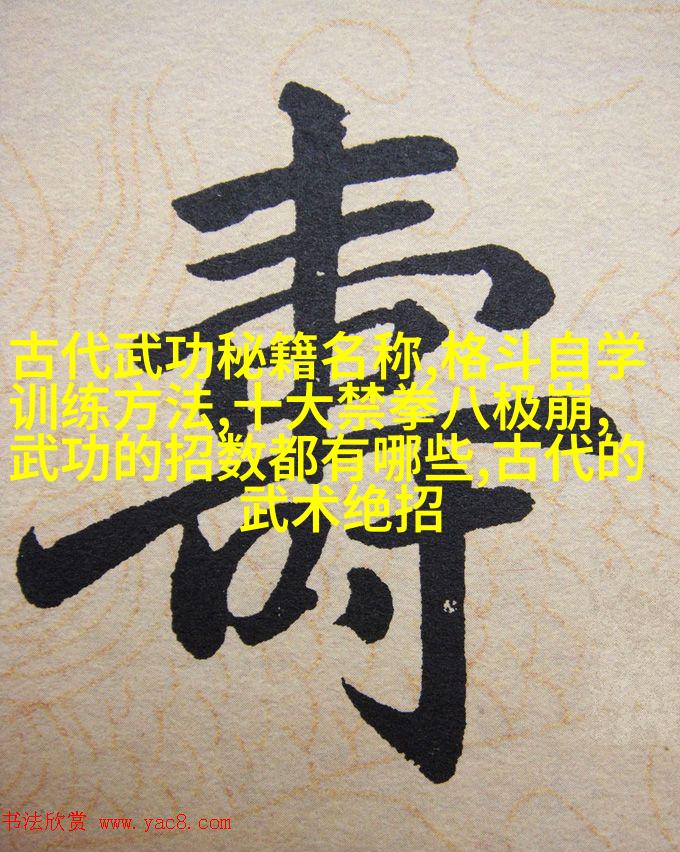 壽
古代武功秘籍名称,格斗自学
训练方法,十大禁拳八极崩,
武功的招数都有哪些,古代的
武术绝招
书法欣赏 www.yac8.com